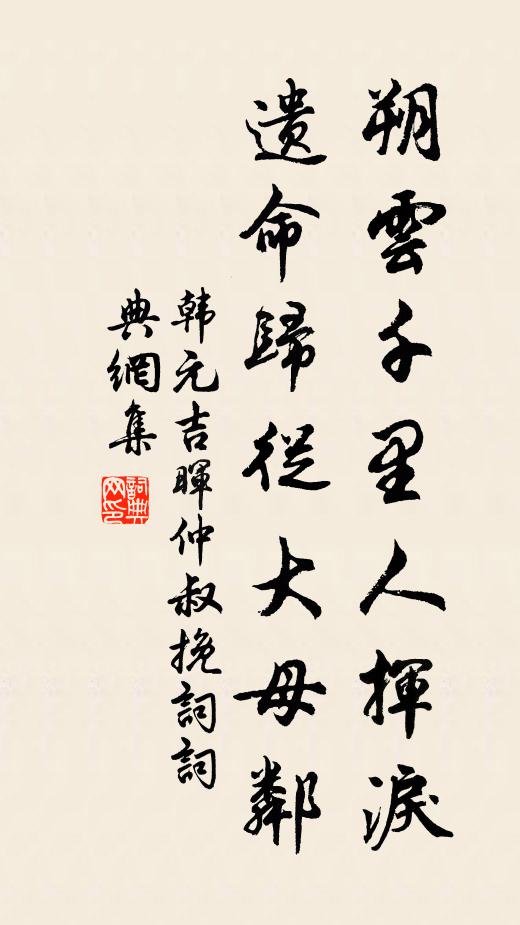 朔雲千里人揮淚
遺命歸從大母鄰
韩元吉暉仲叔挽詞詞
典網集
詞典網印